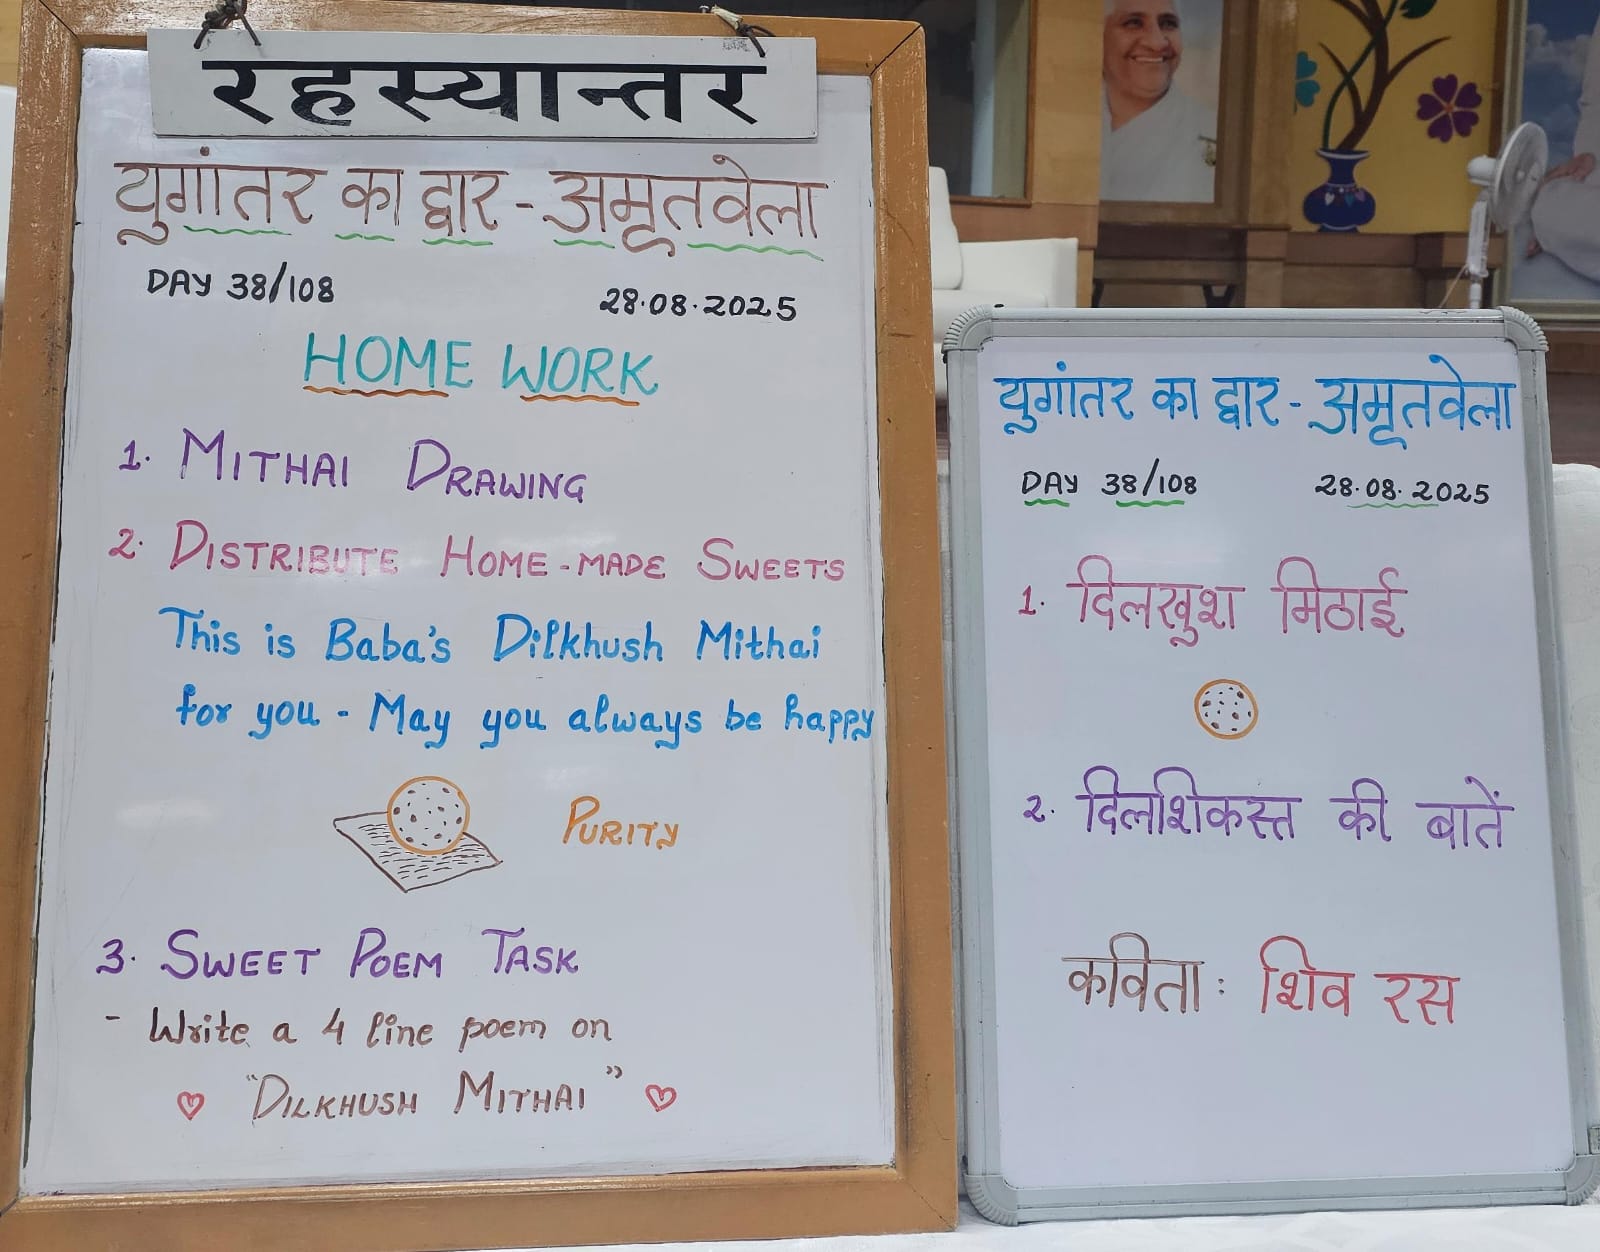 रहस्यान्तर
युगांतर का द्वार - अमृतवेला
DAY 38/108 28.08.2025
HOME WORK
1. MITHAI DRAWING
2. DISTRIBUTE HOME-MADE SWEETS
This is Baba's Dilkhush Mithai
for you - May you always be happy
PURITY
3. SWEET POEM TASK
- Write a 4 line poem on
"DILKHUSH MITHAI"
युगांतर का द्वार - अमृतवेला
DAY 38/108 28.08.2025
1. दिलखुश मिठाई
2. दिलशिकस्त की बातें
कविता: शिव रस